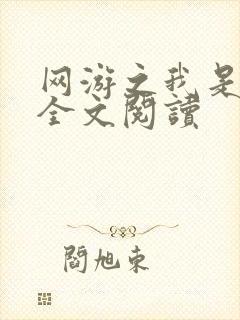 网游之我是
全文閱讀
閻旭東